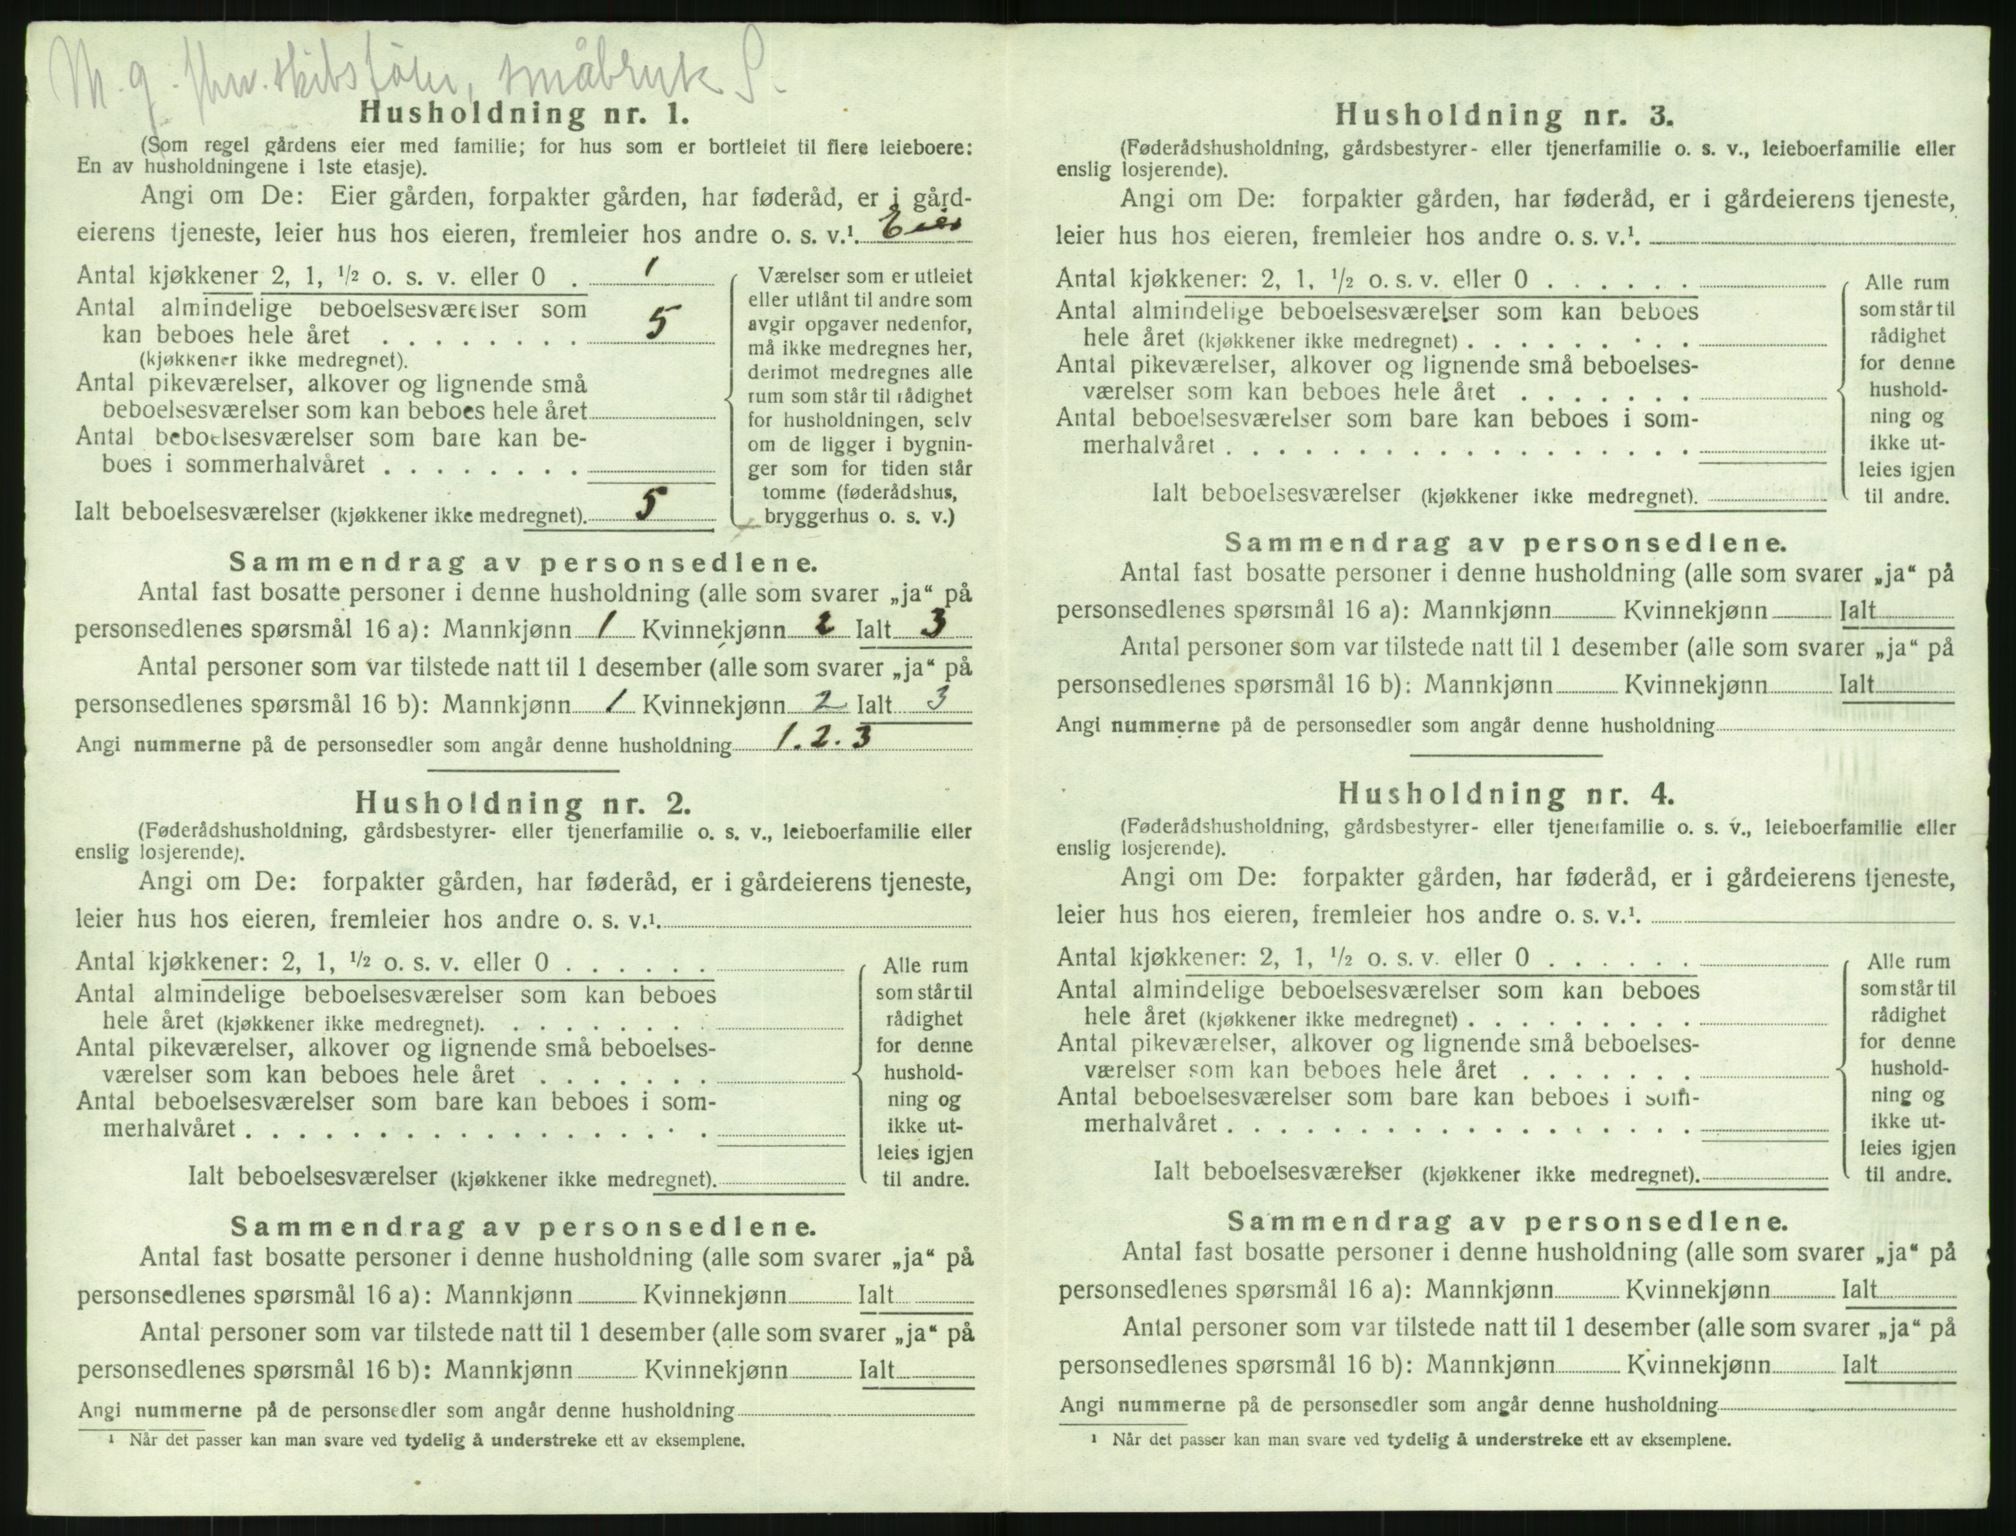 M. g. fhv. skibsfører, småbruk S.
Husholdning nr. 1.
(Som regel gårdens eier med familie; for hus som er bortleiet til flere leieboere:
En av husholdningene i 1ste etasje).
Angi om De: Eier gården, forpakter gården, har føderåd, er i gård-
eierens tjeneste, leier hus hos eieren, fremleier hos andre o. s. v.¹. Eier
Antal kjøkkener 2, 1, ½ o. s. v. eller 0 . 1
Antal almindelige beboelsesværelser som
kan beboes hele året . . . . . . . . 5
(kjøkkener ikke medregnet).
Antal pikeværelser, alkover og lignende små
beboelsesværelser som kan beboes hele året
Antal beboelsesværelser som bare kan be-
boes i sommerhalvåret . . . . . . . .
Ialt beboelsesværelser (kjøkkener ikke medregnet). 5
Værelser som er utleiet
eller utlånt til andre som
avgir opgaver nedenfor,
må ikke medregnes her,
derimot medregnes alle
rum som står til rådighet
for husholdningen, selv
om de ligger i bygnin-
ger som for tiden står
tomme (føderådshus,
bryggerhus o. s. v.)
Sammendrag av personsedlene.
Antal fast bosatte personer i denne husholdning (alle som svarer „ja“ på
personsedlenes spørsmål 16 a): Mannkjønn 1 Kvinnekjønn 2 Ialt 3
Antal personer som var tilstede natt til 1 desember (alle som svarer „ja“ på
personsedlenes spørsmål 16 b): Mannkjønn 1 Kvinnekjønn 2 Ialt 3
Angi nummerne på de personsedler som angår denne husholdning 1. 2. 3
Husholdning nr. 2.
(Føderådshusholdning, gårdsbestyrer- eller tjenerfamilie o. s. v., leieboerfamilie eller
enslig losjerende).
Angi om De: forpakter gården, har føderåd, er i gårdeierens tjeneste,
leier hus hos eieren, fremleier hos andre o. s. v.¹.
Antal kjøkkener: 2, 1, ½ o. s. v. eller 0 . . . . . .
Antal almindelige beboelsesværelser som kan beboes
hele året (kjøkkener ikke medregnet). . . . . . . . .
Antal pikeværelser, alkover og lignende små beboelses-
værelser som kan beboes hele året . . . . . . .
Antal beboelsesværelser som bare kan beboes i som-
merhalvåret . . . . . . . . . . . . . . . . . .
Ialt beboelsesværelser (kjøkkener ikke medregnet).
Alle rum
som står til
rådighet
for denne
hushold-
ning og
ikke ut-
leies igjen
til andre.
Sammendrag av personsedlene.
Antal fast bosatte personer i denne husholdning (alle som svarer „ja“ på
personsedlenes spørsmål 16 a): Mannkjønn Kvinnekjønn Ialt
Antal personer som var tilstede natt til 1 desember (alle som svarer „ja“ på
personsedlenes spørsmål 16 b): Mannkjønn Kvinnekjønn Ialt
Angi nummerne på de personsedler som angår denne husholdning
¹ Når det passer kan man svare ved tydelig å understreke ett av eksemplene.
Husholdning nr. 3.
(Føderådshusholdning, gårdsbestyrer- eller tjenerfamilie o. s. v., leieboerfamilie eller
enslig losjerende).
Angi om De: forpakter gården, har føderåd, er i gårdeierens tjeneste,
leier hus hos eieren, fremleier hos andre o. s. v.¹.
Antal kjøkkener: 2, 1, ½ o. s. v. eller 0 . . . . . .
Antal almindelige beboelsesværelser som kan beboes
hele året (kjøkkener ikke medregnet) . . . . . . . . .
Antal pikeværelser, alkover og lignende små beboelses-
værelser som kan beboes hele året . . . . . . .
Antal beboelsesværelser som bare kan beboes i som-
merhalvåret . . . . . . . . . . . . . . . . . .
Ialt beboelsesværelser (kjøkkener ikke medregnet).
Alle rum
som står til
rådighet
for denne
hushold-
ning og
ikke ut-
leies igjen
til andre.
Sammendrag av personsedlene.
Antal fast bosatte personer i denne husholdning (alle som svarer „ja“ på
personsedlenes spørsmål 16 a): Mannkjønn Kvinnekjønn Ialt
Antal personer som var tilstede natt til 1 desember (alle som svarer „ja“ på
personsedlenes spørsmål 16 b): Mannkjønn Kvinnekjønn Ialt
Angi nummerne på de personsedler som angår denne husholdning
Husholdning nr. 4.
(Føderådshusholdning, gårdsbestyrer- eller tjenerfamilie o. s. v., leieboerfamilie eller
enslig losjerende).
Angi om De: forpakter gården, har føderåd, er i gårdeierens tjeneste,
leier hus hos eieren, fremleier hos andre o. s. v.¹.
Antal kjøkkener: 2, 1, ½ o. s. v. eller 0 . . . . . .
Antal almindelige beboelsesværelser som kan beboes
hele året (kjøkkener ikke medregnet) . . . . . . . . .
Antal pikeværelser, alkover og lignende små beboelses-
værelser som kan beboes hele året . . . . . . .
Antal beboelsesværelser som bare kan beboes i som-
merhalvåret . . . . . . . . . . . . . . . . . .
Ialt beboelsesværelser (kjøkkener ikke medregnet).
Alle rum
som står til
rådighet
for denne
hushold-
ning og
ikke ut-
leies igjen
til andre.
Sammendrag av personsedlene.
Antal fast bosatte personer i denne husholdning (alle som svarer „ja“ på
personsedlenes spørsmål 16 a): Mannkjønn Kvinnekjønn Ialt
Antal personer som var tilstede natt til 1 desember (alle som svarer „ja“ på
personsedlenes spørsmål 16 b): Mannkjønn Kvinnekjønn Ialt
Angi nummerne på de personsedler som angår denne husholdning
¹ Når det passer kan man svare ved tydelig å understreke ett av eksemplene.